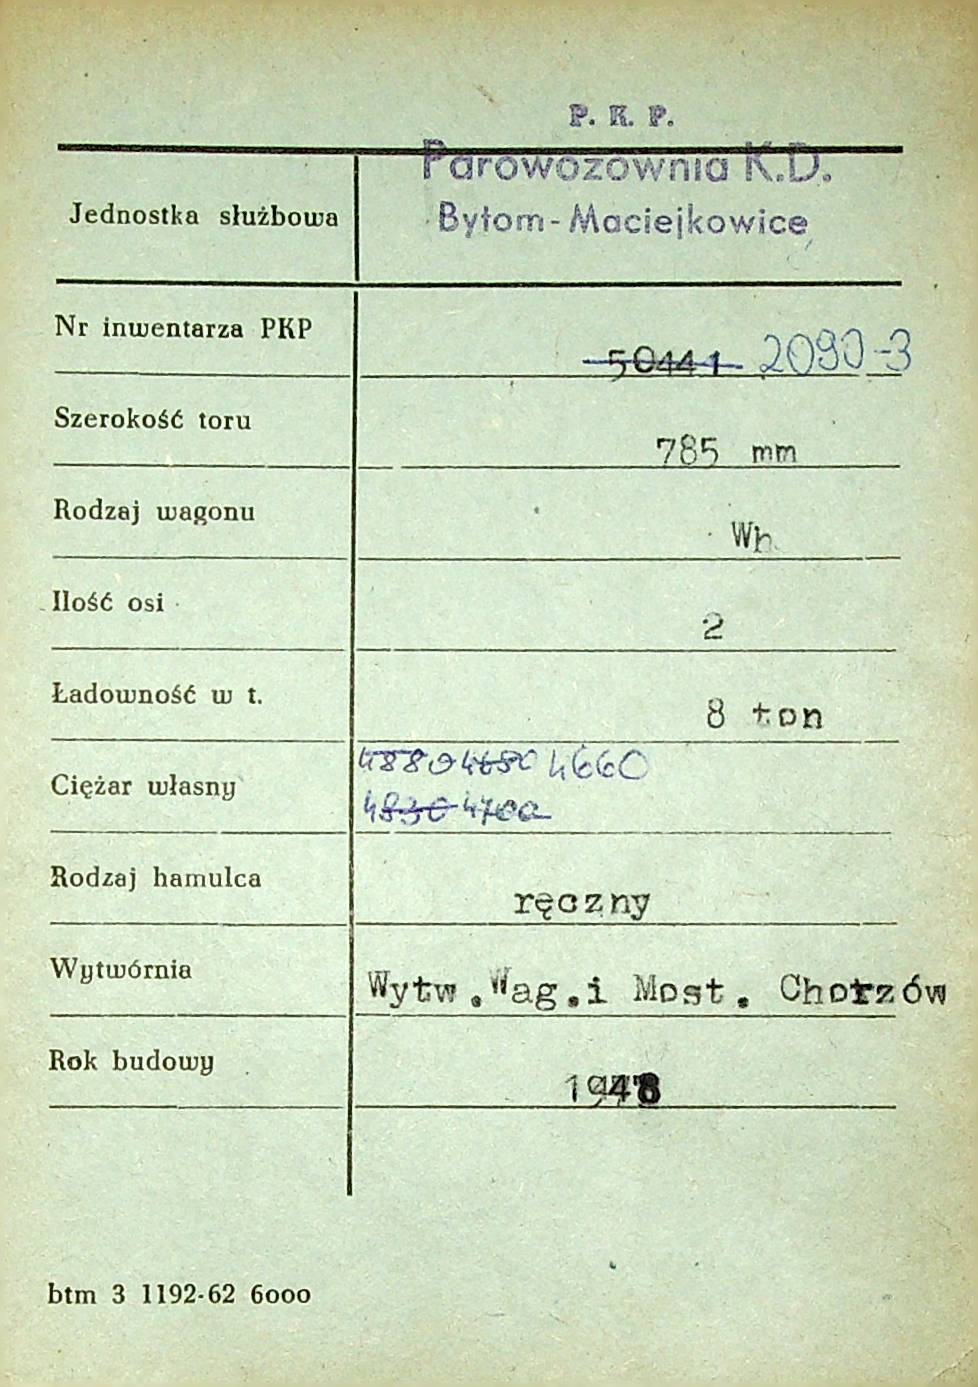 P. K. P.
Parowozownia K.D.
Jednostka służbowa
Bytom-Maciejkowice
Nr inwentarza PKP
50441 2090-3
Szerokość toru
785 mm
Rodzaj wagonu
Wh
Ilość osi
2
Ładowność w t.
8 ton
Ciężar własny
4880 4680 4660
4830 4700
Rodzaj hamulca
ręczny
Wytwórnia
Wytw.Wag.i Most. Chorzów
Rok budowy
1948
btm 3 1192-62 6000